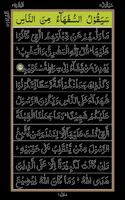 سَيَقُوْلُ السُّفَهَآءُ مِنَ النَّاسِ
مَا وَلّٰىهُمْ عَنْ قِبْلَتِهِمُ الَّتِيْ كَانُوْا
عَلَيْهَا ؕ قُلْ لِّلّٰهِ الْمَشْرِقُ وَالْمَغْرِبُ ؕ
يَهْدِيْ مَنْ يَّشَآءُ اِلٰى صِرَاطٍ مُّسْتَقِيْمٍ
وَكَذٰلِكَ جَعَلْنٰكُمْ اُمَّةً وَّسَطًا لِّتَكُوْنُوْا
شُهَدَآءَ عَلَى النَّاسِ وَيَكُوْنَ الرَّسُوْلُ
عَلَيْكُمْ شَهِيْدًا ؕ وَمَا جَعَلْنَا الْقِبْلَةَ
الَّتِيْ كُنْتَ عَلَيْهَآ اِلَّا لِنَعْلَمَ مَنْ يَّتَّبِعُ
الرَّسُوْلَ مِمَّنْ يَّنْقَلِبُ عَلٰى عَقِبَيْهِ ؕ
وَاِنْ كَانَتْ لَكَبِيْرَةً اِلَّا عَلَى الَّذِيْنَ
هَدَى اللّٰهُ ؕ وَمَا كَانَ اللّٰهُ لِيُضِيْعَ